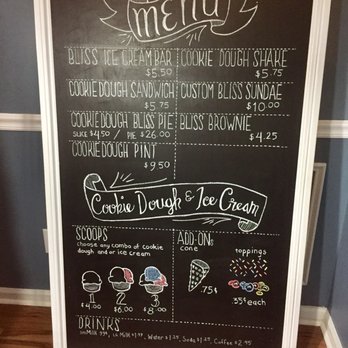 MENU
BLISS ICE CREAM BAR
$5.50
COOKIE DOUGH SHAKE
$5.75
COOKIE DOUGH SANDWICH
$5.75
CUSTOM BLISS SUNDAE
$10.00
COOKIE DOUGH BLISS PIE
SLICE $4.50 / PIE $26.00
BLISS BROWNIE
$4.25
COOKIE DOUGH PINT
$9.50
Cookie Dough & Ice Cream
SCOOPS
choose any combo of cookie
dough and or ice cream
1 2 3
$4.00 $6.00 $8.00
ADD-ONS
cone
.75¢
toppings
35¢ each
DRINKS
Milk $1.99, Water $1.25, Soda $1.25, Coffee $2.95